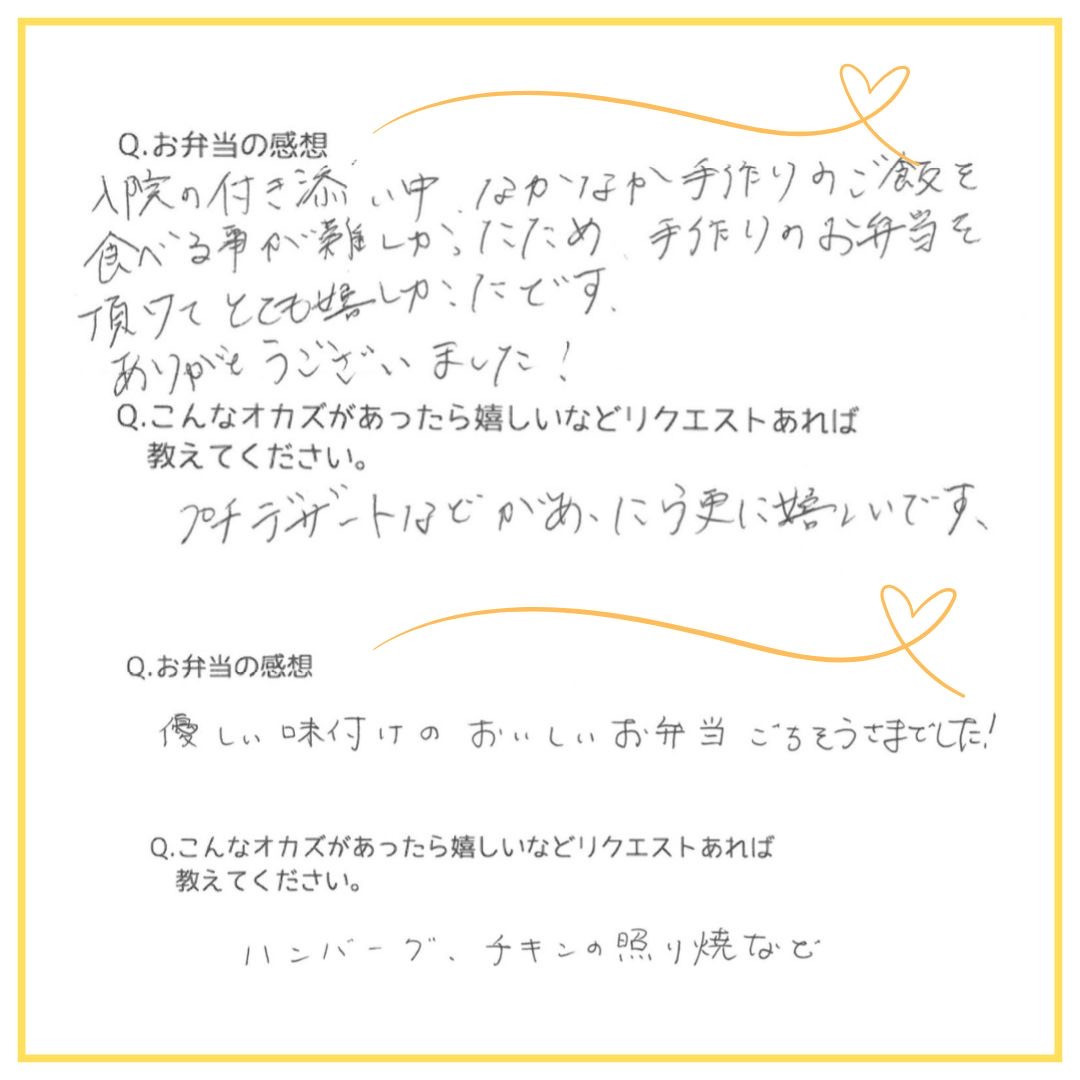 Q.お弁当の感想
入院の付き添い中、なかなか手作りのご飯を
食べる事が難しかったため、手作りのお弁当を
頂けてとても嬉しかったです。
ありがとうございました!
Q.こんなオカズがあったら嬉しいなどリクエストあれば
教えてください。
プチデザートなどがあったら更に嬉しいです、
Q.お弁当の感想
優しい味付けのおいしいお弁当ごちそうさまでした!
Q.こんなオカズがあったら嬉しいなどリクエストあれば
教えてください。
ハンバーグ、チキンの照り焼など